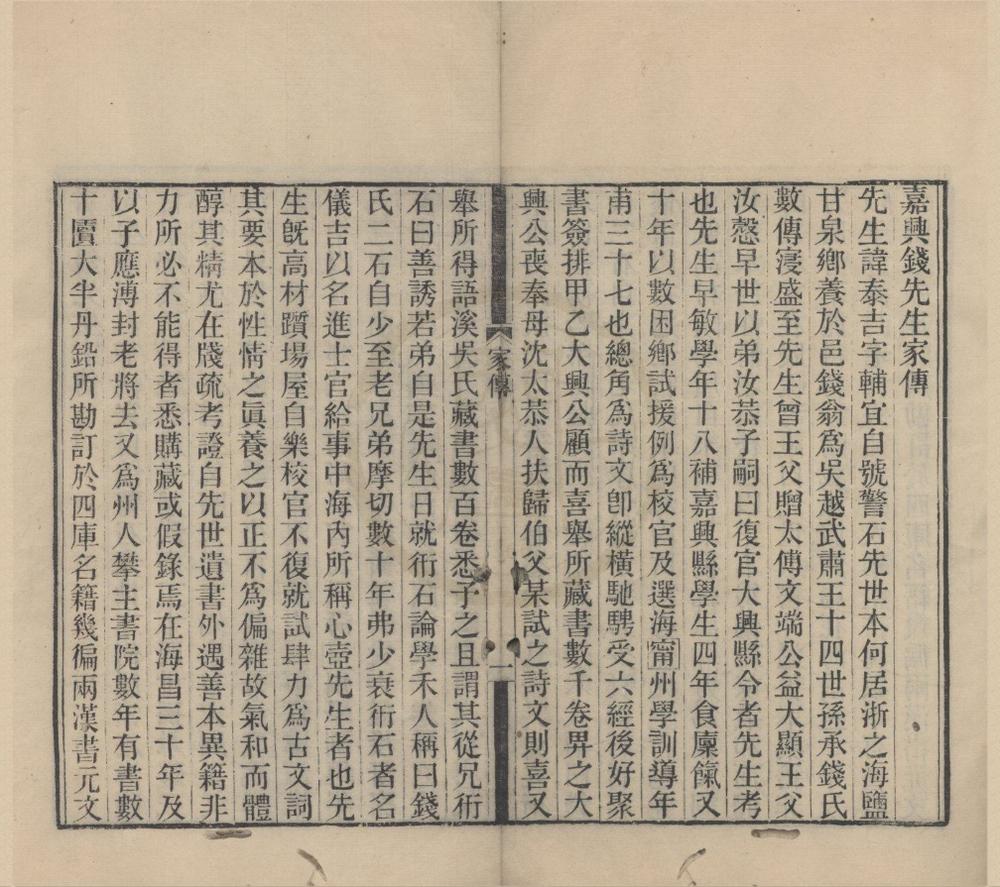 嘉興錢先生家傳
先生諱泰吉字輔宜自號警石先世本何居浙之海鹽
甘泉鄉養於邑錢翁爲吳越武肅王十四世孫承錢氏
數傳寖盛至先生曾王父贈太傅文端公益大顯王父
汝慤早世以弟汝恭子嗣曰復官大興縣令者先生考
也先生早敏學年十八補嘉興縣學生四年食廩餼又
十年以數困鄉試援例爲校官及選海甯州學訓導年
甫三十七也總角爲詩文卽縱橫馳騁受六經後好聚
書簽排甲乙大興公顧而喜舉所藏書數千卷畀之大
興公喪奉母沈太恭人扶歸伯父某試之詩文則喜又
家傳
一
舉所得語溪吳氏藏書數百卷悉予之且謂其從兄衎
石曰善誘若弟自是先生日就衎石論學禾人稱曰錢
氏二石自少至老兄弟摩切數十年弗少衰衎石者名
儀吉以名進士官給事中海內所稱心壺先生者也先
生旣高材躓場屋自樂校官不復就試肆力爲古文詞
其要本於性情之眞養之以正不爲偏雜故氣和而體
醇其精尤在牋疏考證自先世遺書外遇善本異籍非
力所必不能得者悉購藏或假錄焉在海昌三十年及
以子應溥封老將去又爲州人攀主書院數年有書數
十匵大半丹鉛所勘訂於四庫名籍幾徧兩漢書元文